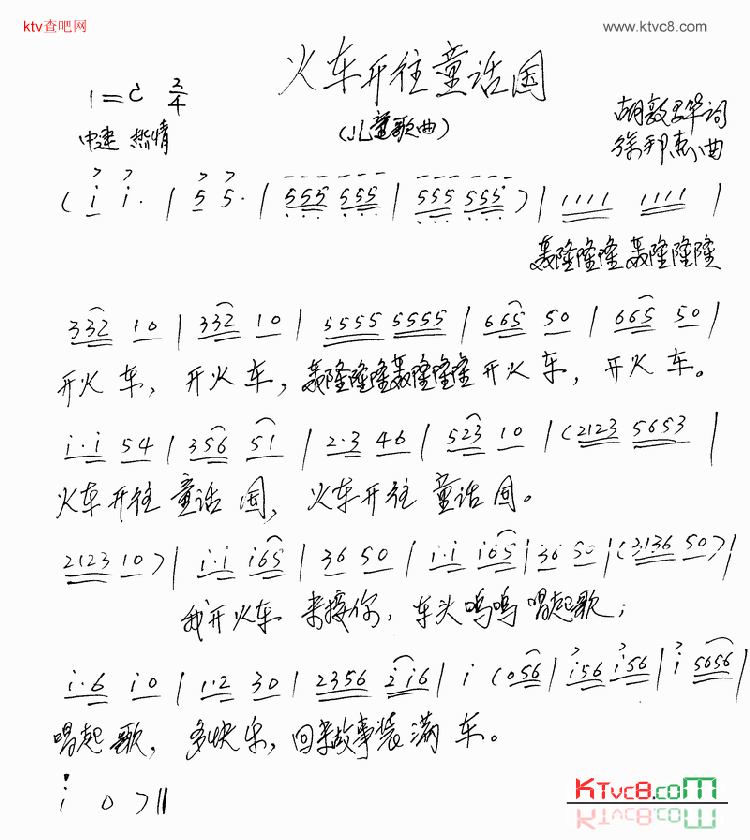 ktv查吧网
www.ktvc8.com
火车开往童话国
1=C 2/4
(儿童歌曲)
中速 热情
胡敦华词
徐邦杰曲
( i i· | 5 5· | 555 555 | 555 555 ) | 1111 1111 |
轰隆隆隆轰隆隆隆
332 10 | 332 10 | 5555 5555 | 665 50 | 665 50 |
开火车，开火车，轰隆隆隆轰隆隆隆开火车，开火车。
i·i 54 | 356 51 | 2·3 46 | 523 10 | (2123 5653 |
火车开往童话国，火车开往童话国。
2123 10) | i·i i65 | 36 50 | i·i i65 | 36 50 | (3136 50) |
我开火车来接你，车头呜呜唱起歌；
i·6 i0 | 1·2 30 | 2356 2i6 | i (056 | i56 i56 | i 5656 |
唱起歌，多快乐，回来故事装满车。
i 0 ) ||
KTvc8.com